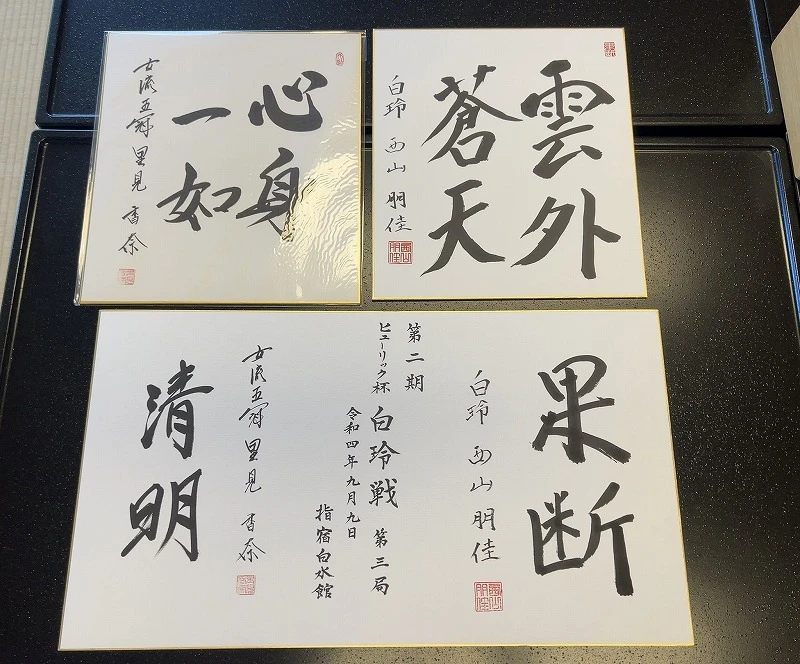 心身
一如
女流五冠 里見 香奈
雲外
蒼天
白玲 西山 朋佳
西山
朋佳
果断
白玲 西山 朋佳
西山
朋佳
第二期
ヒューリック杯 白玲戦 第三局
令和四年九月九日
指宿白水館
女流五冠 里見 香奈
清明